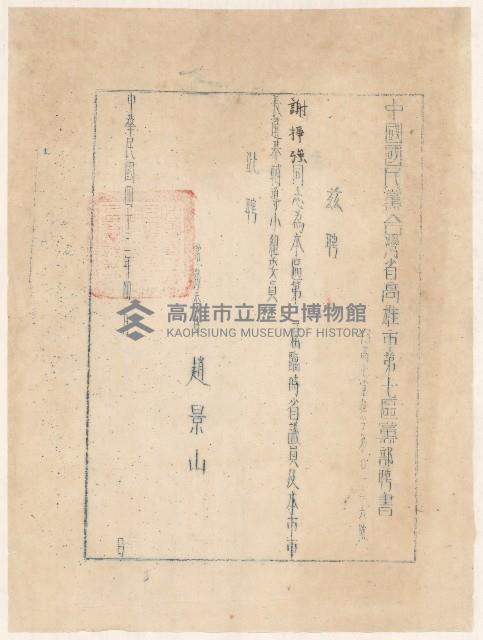 中國國民黨台灣省高雄市第十區黨部聘書
茲聘
謝掙強同志為本區第二屆臨時省議員及本市市
長選舉輔導小組委員
此聘
常務委員 趙景山
中華民國四十三年四月 日
高雄市立歷史博物館
KAOHSIUNG MUSEUM OF HISTORY